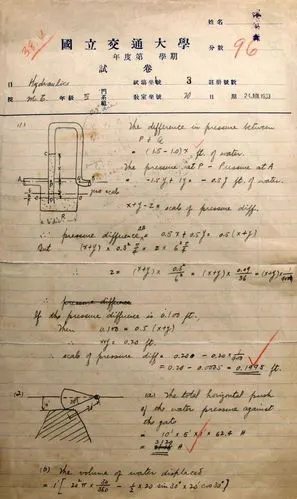 姓名
國立交通大學
分數 96
年度第 學期
試卷
目 Hydraulics
試場坐號 3
註冊號數
院 M.E. 年級 III
教室坐號 20
日期 24 JUN 1933
(1)
The difference in pressure between
P & Q
= (1.5 - 1.0) x ft. of water.
The pressure at P - Pressure at A
= -1.5y + 1y = -0.5y ft. of water.
x+y = 2x scale of pressure diff.
∴ pressure difference = 0.5x + 0.5y = 0.5(x+y)
But
∴
∴ pressure difference
If the pressure difference is 0.100 ft.
Then 0.100 = 0.5(x+y)
∴ x+y = 0.20 ft.
∴ scale of pressure diff =
= 0.20 - 0.0025 = 0.1975 ft.
(2)
(a) The total horizontal push
of the water pressure against
the gate
= 10' x 5' x 1' x 62.4 #
= 3120 #
(b) The volume of water displaced
= 1' [ 20² π x 30/360 - 1/2 x 20 sin 30° x 20 cos 30° ]